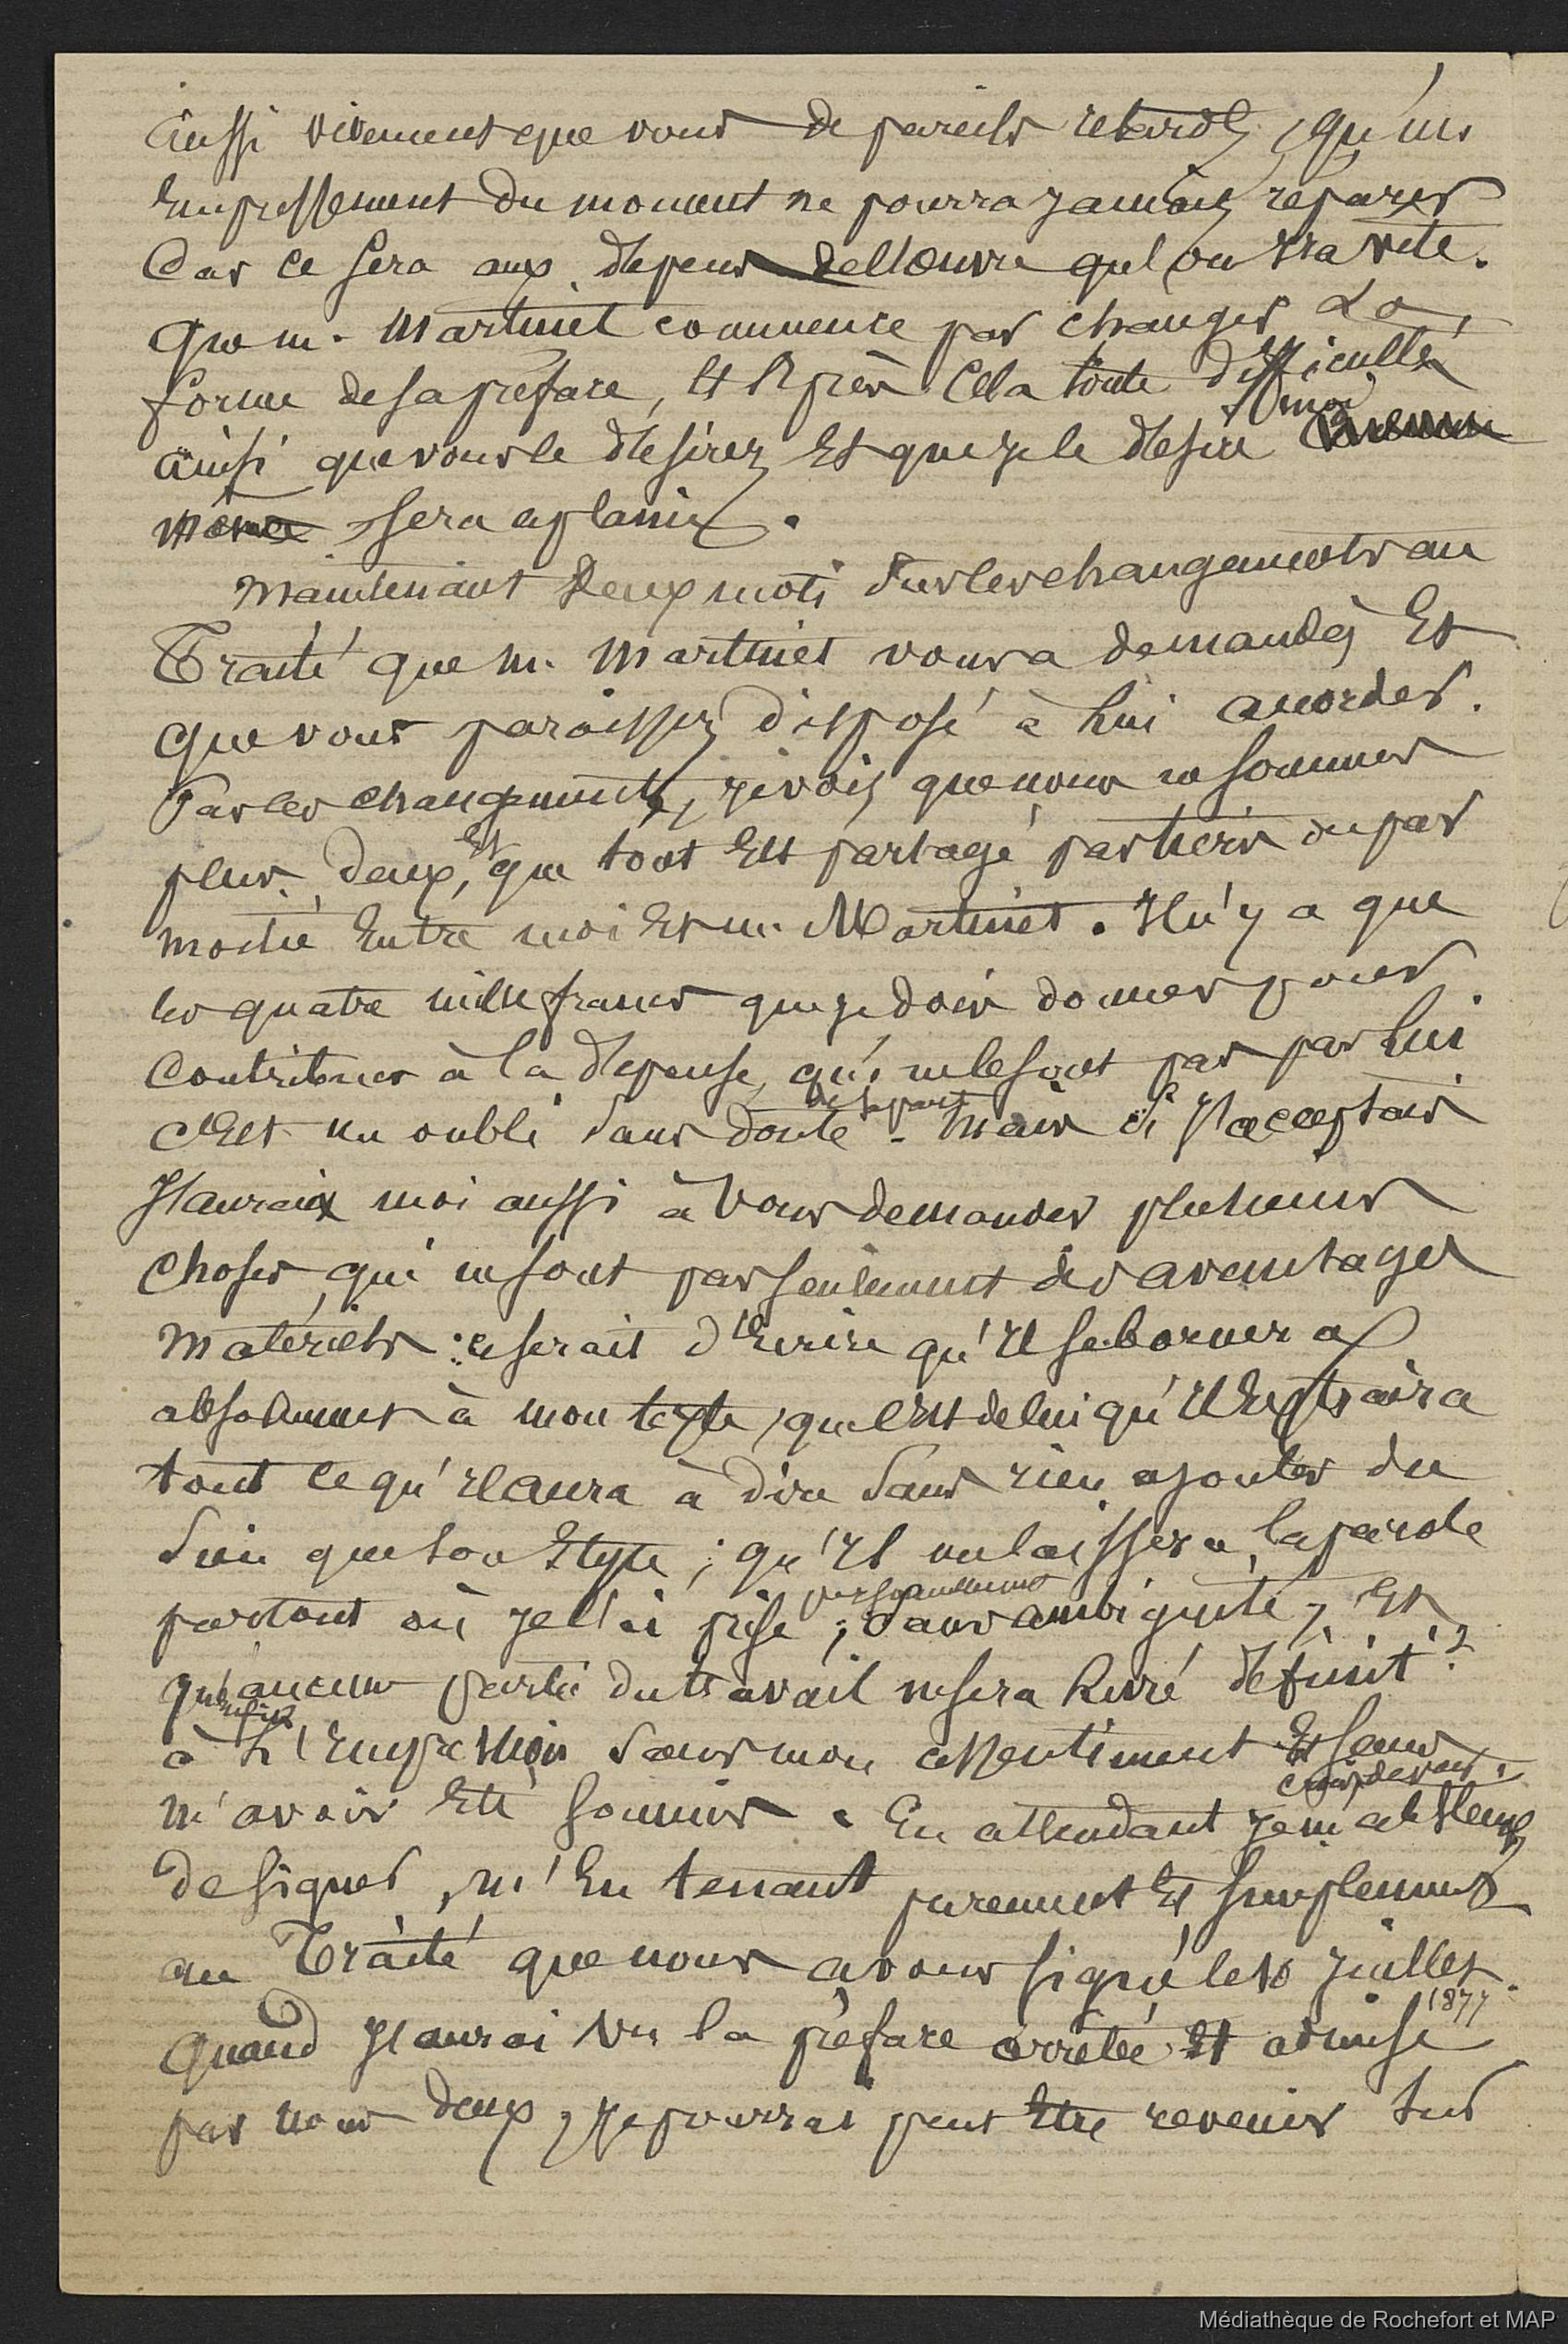 aussi vivement que vous de pareils retards, qu'un
empressement du moment ne pourra jamais réparer
Car ce sera aux dépens de l'œuvre qu'on ira vite.
Que m. Martinet commence par changer La
forme de sa préface, Et Après Cela toute difficulté
ainsi que vous le désirez Et que je le désire moi
même sera aplanie.
Maintenant Deux mots sur les changements au
Traité que m. Martinet vous a demandés Et
que vous paraissez disposé à lui accorder.
Par les changements, je vois que nous ne sommes
plus deux, Et que tout Est partagé par tiers ou par
moitié Entre moi Et m. Martinet. Il n'y a que
les quatre mille francs que je dois donner pour
Contribuer à la dépense, qui ne le sont pas par lui
C'Est un oubli sans doute de sa part - Mais si J'acceptais
J'aurais moi aussi à vous demander plusieurs
choses, qui ne sont pas seulement des avantages
matériels : ce serait d'Ecrire qu'Il se bornera
absolument à mon texte, que c'Est de lui qu'Il Extraira
tout ce qu'Il aura à dire sans rien ajouter du
sien que son Style ; qu'Il me laissera la parole
partout où je l'ai prise personnellement, sans ambiguité, Et
qu'aucune partie du travail ne sera livré définit.t
à L'Impression sans mon assentiment Et sans
m'avoir Eté soumis auparavant. En attendant je m'abstiens
de signer, m'En tenant purement Et simplement
au Traité que nous avons signé le 10 Juillet 1877.
Quand J'aurai Vu la préface arrêtée Et admise
par nous deux, Je pourrai peut Etre revenir sur
Médiathèque de Rochefort et MAP